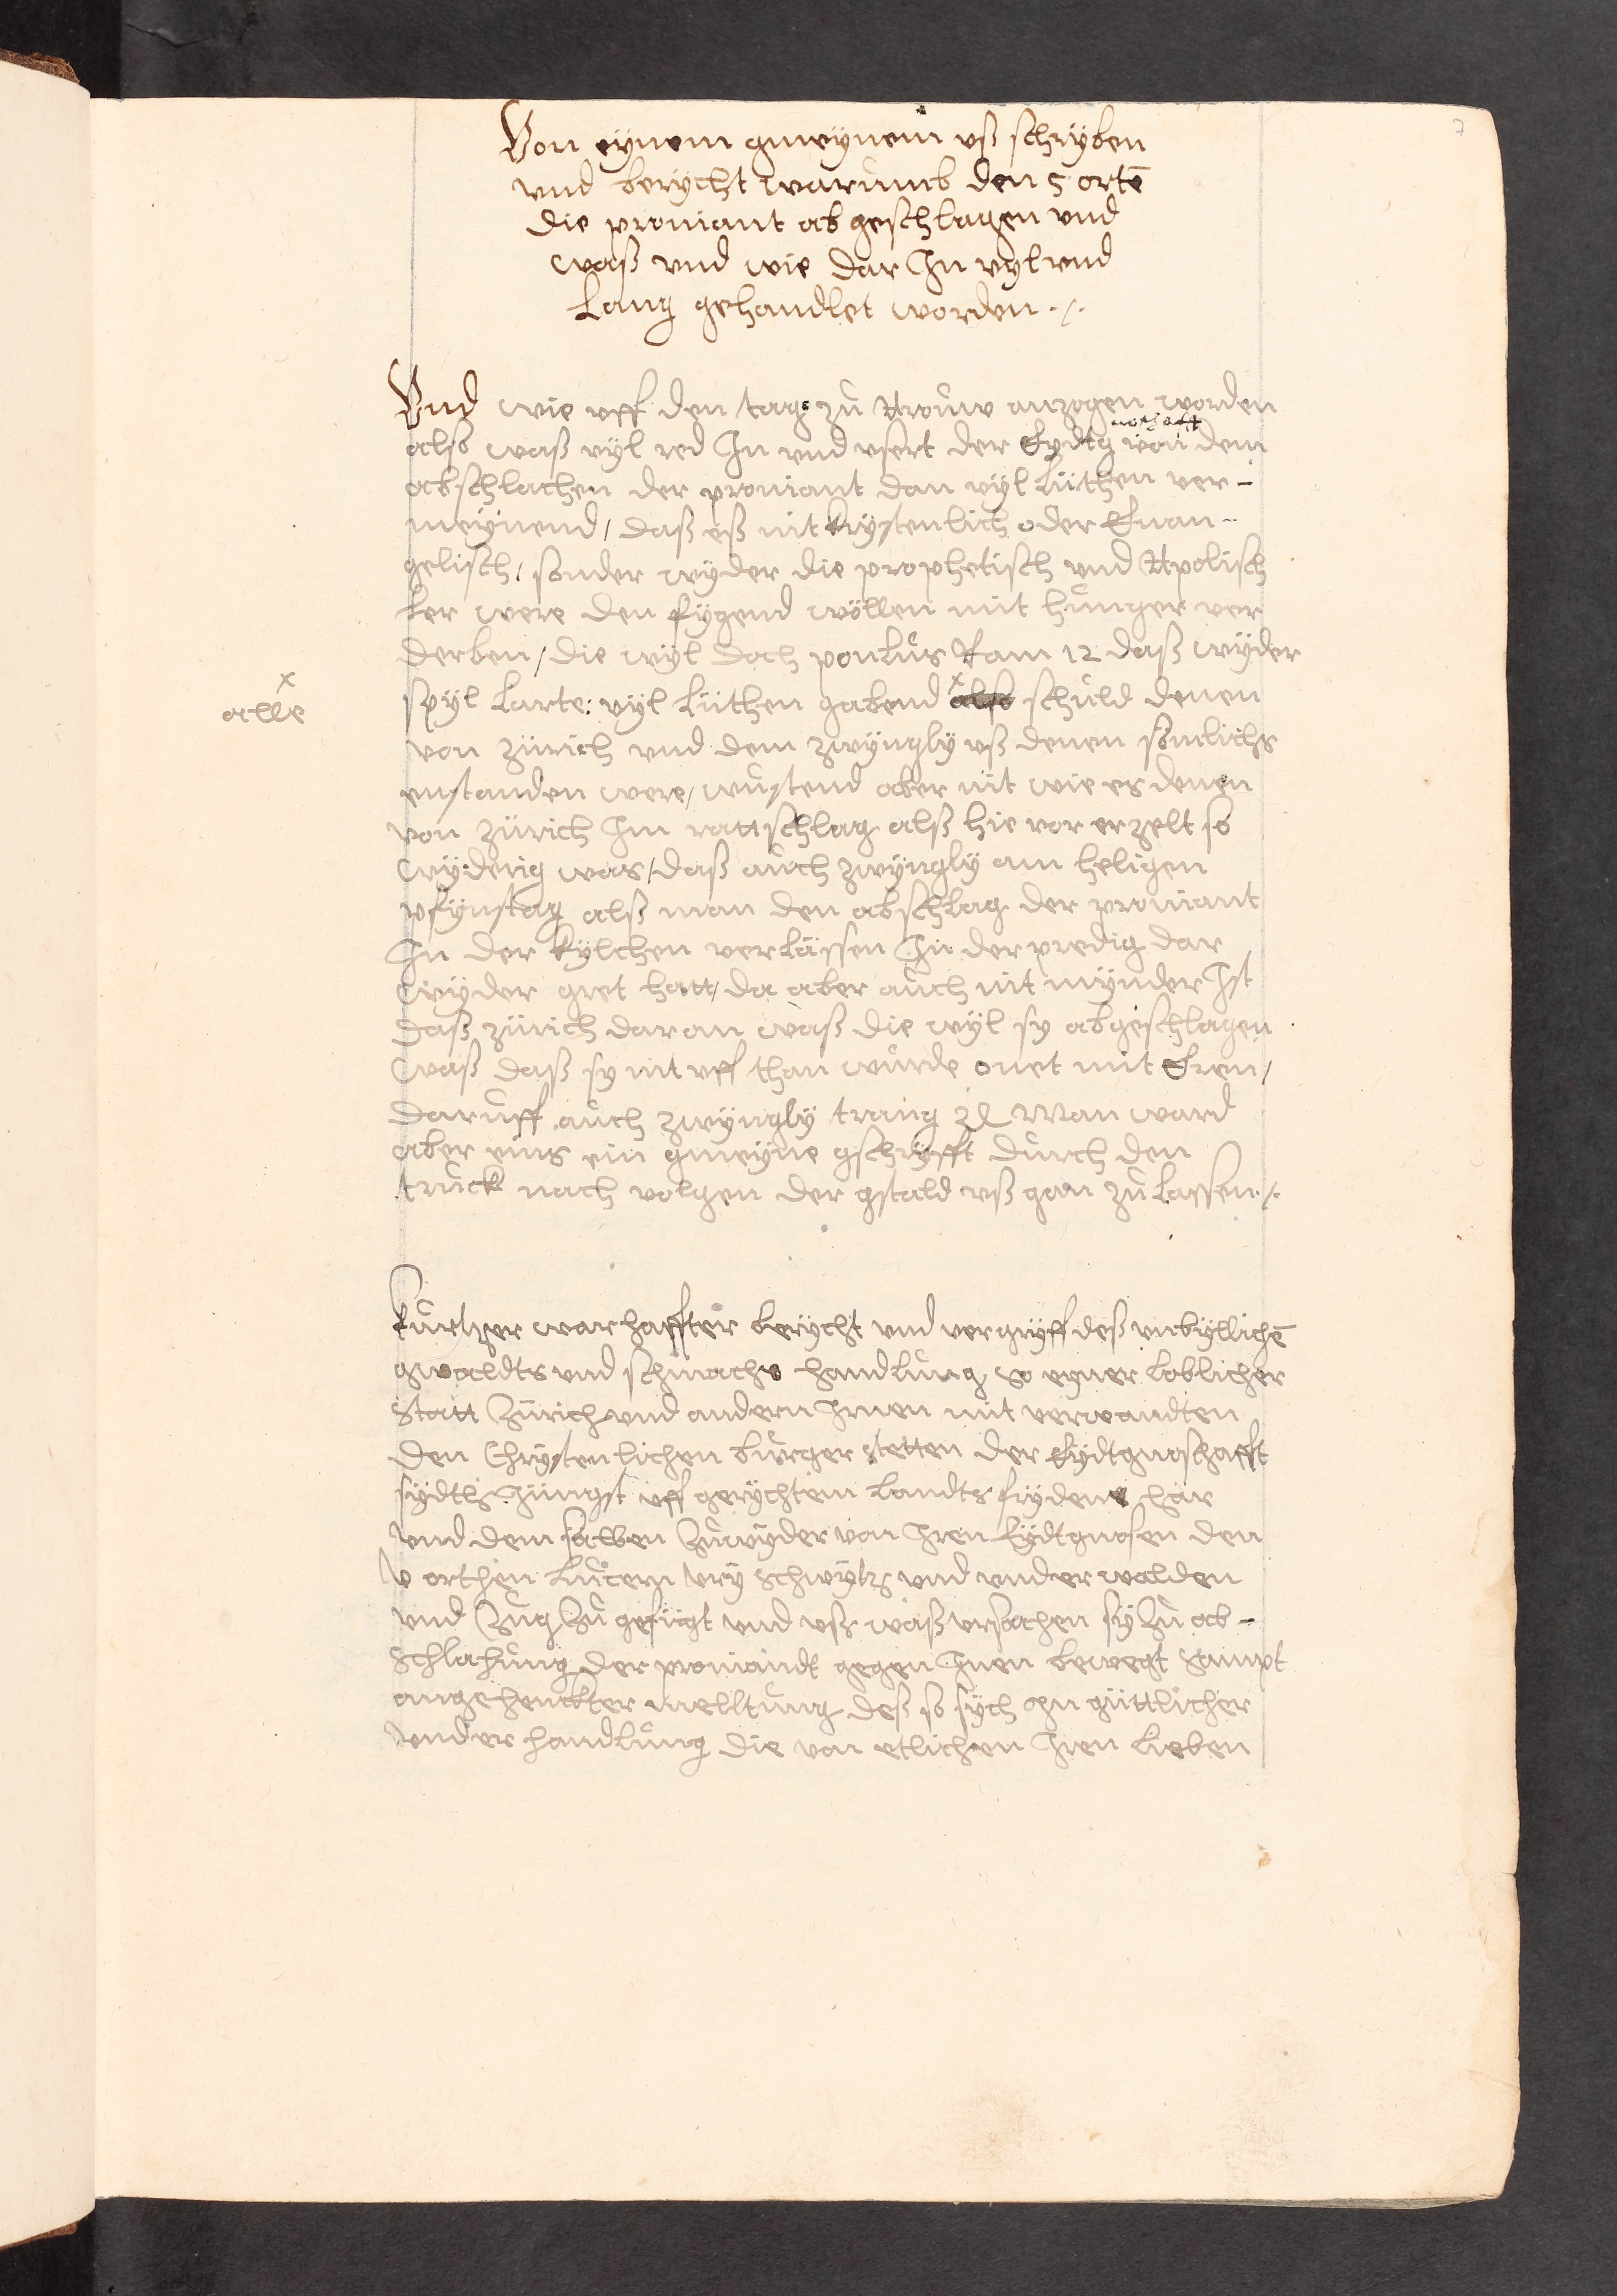 7
Von eÿnem gmeÿnem vß schrÿben
vnd berÿcht warumb den 5 ortē
die proviant ab geschlagen vnd
waß vnd wie dar Jn vyl vnd
Lang gehandlet worden ./.
Vnd wie vff den tag zů Arouw anzogen worden
noschafft
also waß vÿl red Jn vnd vsert der Eydtg von dem
abschlachen der proviant dan vÿl Lüthen ver-
meÿnend / daß eß nit krystenlich oder Evan-
gelisch / sonder wÿder die prophetisch vnd Apolisch
Ler were den fÿgend wöllen mit hunger ver
derben / die wÿl doch pauLus Rom 12 daß wÿder
spÿl Larte: vÿl Lüthen gabend also schuld denen
x
alle
von zürich vnd dem zwÿnglÿ vß denen somlichs
enstanden were / wustend aber nit wie es denen
von zürich Jm rattschlag alß hie vor erzelt so
wÿderig was / daß auch zwÿnglÿ am heligen
pfÿnstag alß man den abschlag der proviant
Jn der kÿlchen verLässen Jn der predig dar
wÿder gret hatt / da aber auch nit mÿnder Jst
daß zürich daran waß die wÿl sy abgeschlagen
waß daß sy nit vff than wurde onet mit Eren /
daruff auch zwÿnglÿ trang ꝛc Man ward
aber eins ein gmeÿne gschrÿfft durch den
truck nach volgen der gstald vß gan zů Lassen ./.
Kurtzer warhaffter berÿcht vnd vergrÿff deß vnbÿllichē
gwaldts vnd schmache handLung so eyner Loblicher
Statt Zürich vnd andern Jrnen mit verwandten
den Chrÿstenlichen burger stetten der Eÿdtgnoschafft
sÿdth Jüngst vff gerÿchtem Landts frÿdens här
vnd dem selben Zuwÿder von Jren Eÿdtgnosen den
V orthen Lucern Vrÿ Schwÿtz vnd vnderwalden
vnd Zug Zů gefügt vnd vß waß vrsachen sÿ Zů ab-
schlachung der proviandt gegen Jnen bewegt sampt
angehenckter melltung deß so sÿch Jn güttlicher
vnder handLung die von etlichen Jren Lieben